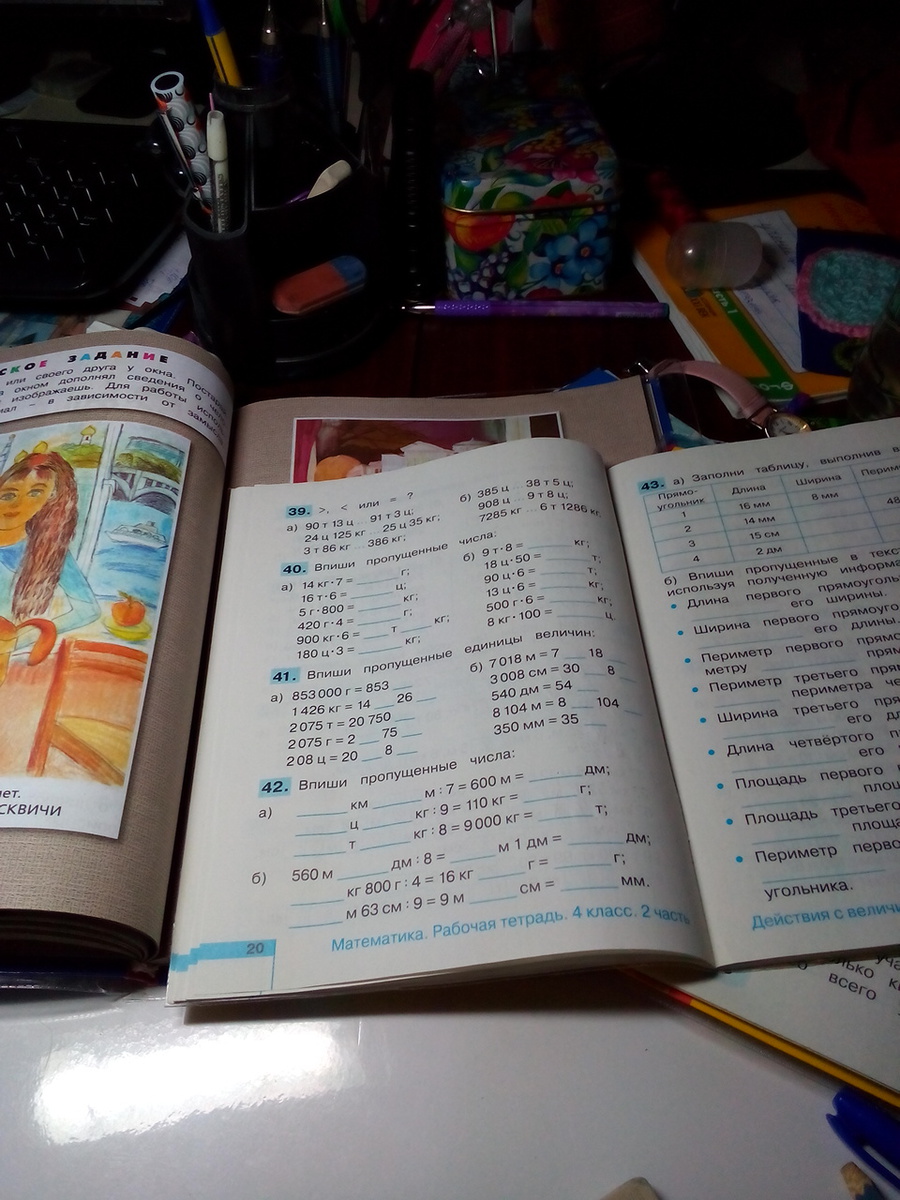 СКОЕ ЗАДАНИЕ
или своего друга у окна.
окном дополнял сведения о
изображаешь. Для работы
– в зависимости от
СКВИЧИ
39. >, < или = ?
а) 90 т 13 ц ... 91 т 3 ц;
24 ц 125 кг ... 25 ц 35 кг;
3 т 86 кг ... 386 кг;
б) 385 ц ... 38 т 5 ц;
908 ц ... 9 т 8 ц;
7285 кг ... 6 т 1286 кг.
40. Впиши пропущенные числа:
а) 14 кг · 7 = ____ г;
16 т · 6 = ____ ц;
5 г · 800 = ____ кг;
420 г · 4 = ____ г;
900 кг · 6 = ____ т ____ кг;
180 ц · 3 = ____ кг;
б) 9 т · 8 = ____ кг;
18 ц · 50 = ____ т;
90 ц · 6 = ____ т;
13 ц · 6 = ____ кг;
500 г · 6 = ____ кг;
8 кг · 100 = ____ ц.
41. Впиши пропущенные единицы величин:
а) 853 000 г = 853 ___
1 426 кг = 14 ___ 26 ___
2 075 т = 20 750 ___
2 075 г = 2 ___ 75 ___
208 ц = 20 ___ 8 ___
б) 7 018 м = 7 ___ 18 ___
3 008 см = 30 ___ 8 ___
540 дм = 54 ___
8 104 м = 8 ___ 104 ___
350 мм = 35 ___
42. Впиши пропущенные числа:
а) ____ км ____ м : 7 = 600 м = ____ дм;
____ ц ____ кг : 9 = 110 кг = ____ г;
____ т ____ кг : 8 = 9 000 кг = ____ т;
б) 560 м ____ дм : 8 = ____ м 1 дм = ____ дм;
____ кг 800 г : 4 = 16 кг ____ г = ____ г;
____ м 63 см : 9 = 9 м ____ см = ____ мм.
20
Математика. Рабочая тетрадь. 4 класс. 2 часть
43. а) Заполни таблицу, выполнив
Прямо-угольник Длина Ширина
1 16 мм 8 мм
2 14 мм 48
3 15 см
4 2 дм
б) Впиши пропущенные в
используя полученную
• Длина первого
____ его ширины.
• Ширина первого
____ его длины.
• Периметр первого
метру ____
• Периметр третьего
____ периметра
• Ширина третьего
____ его
• Длина четвёртого
____ его
• Площадь первого
____
• Площадь третьего
____
• Периметр
____
угольника.
Действия с
всего